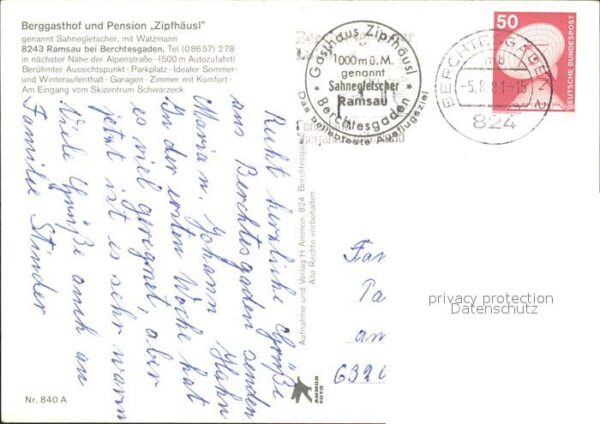 Berggasthof und Pension „Zipfhäusl"
genannt Sahnegletscher, mit Watzmann
8243 Ramsau bei Berchtesgaden, Tel. (08657) 278
in nächster Nähe der Alpenstraße · (500 m Autozufahrt)
Berühmter Aussichtspunkt · Parkplatz · Idealer Sommer-
und Winteraufenthalt · Garagen · Zimmer mit Komfort ·
Am Eingang vom Skizentrum Schwarzeck
Gasthaus Zipfhäusl
1000 m ü. M.
genannt
Sahnegletscher
Ramsau
Berchtesgaden
Das beliebteste Ausflugsziel
50
DEUTSCHE BUNDESPOST
BERCHTESGADEN 2
mb
-5.8.81-15
824
Recht herzliche Grüße
aus Berchtesgaden senden
Maria u. Johann Hahn
In der ersten Woche hat
es viel geregnet, aber
jetzt ist es sehr warm
Viele Grüße auch an
Familie Stinder
Aufnahme und Verlag H. Ammon, 824 Berchtesgaden
Alle Rechte vorbehalten
AMMON
FOTO
Fa
Pa
an
632
privacy protection
Datenschutz
Nr. 840 A